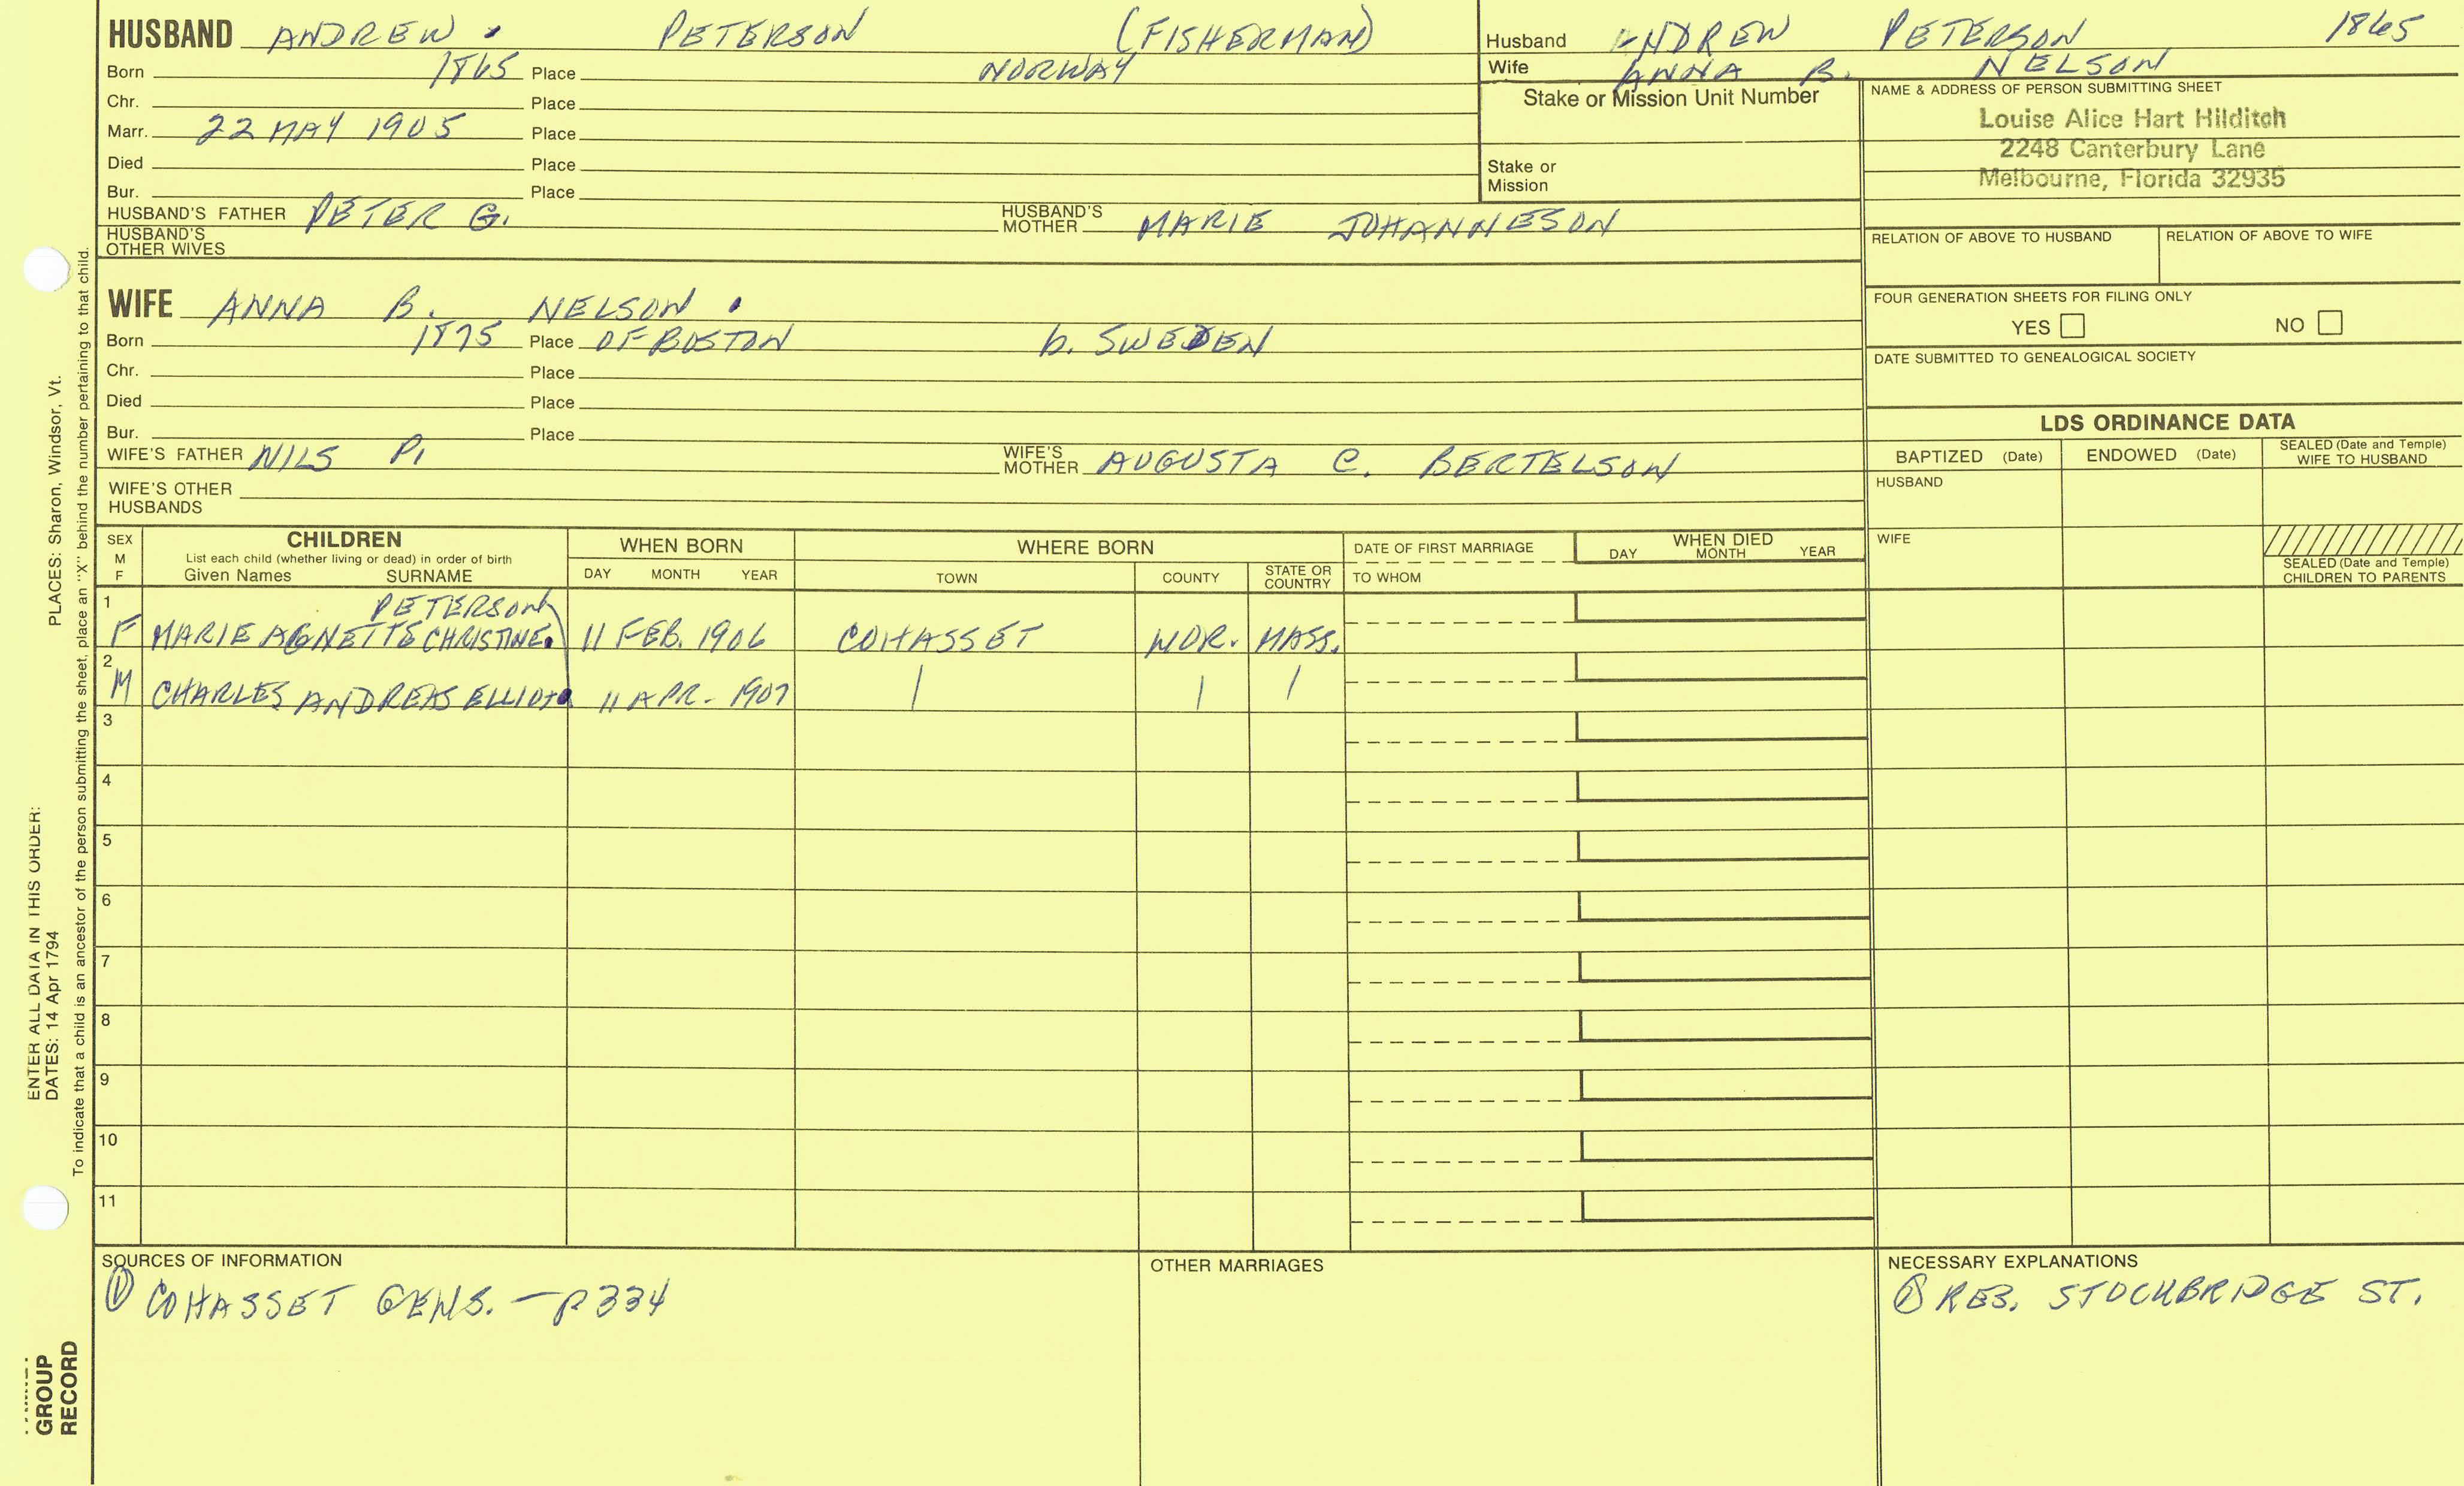 HUSBAND ANDREW . PETERSON (FISHERMAN)
Born 1865 Place NORWAY
Chr. Place
Marr. 22 MAY 1905 Place
Died Place
Bur. Place
HUSBAND'S FATHER PETER G. HUSBAND'S MOTHER MARIE JOHANNESON
HUSBAND'S OTHER WIVES
Husband ANDREW PETERSON 1865
Wife ANNA B. NELSON
Stake or Mission Unit Number
Stake or Mission
NAME & ADDRESS OF PERSON SUBMITTING SHEET
Louise Alice Hart Hilditch
2248 Canterbury Lane
Melbourne, Florida 32935
RELATION OF ABOVE TO HUSBAND RELATION OF ABOVE TO WIFE
FOUR GENERATION SHEETS FOR FILING ONLY
YES NO
DATE SUBMITTED TO GENEALOGICAL SOCIETY
WIFE ANNA B. NELSON .
Born 1875 Place OF BOSTON b. SWEDEN
Chr. Place
Died Place
Bur. Place
WIFE'S FATHER NILS P. WIFE'S MOTHER AUGUSTA C. BERTELSON
WIFE'S OTHER HUSBANDS
LDS ORDINANCE DATA
BAPTIZED (Date) ENDOWED (Date) SEALED (Date and Temple) WIFE TO HUSBAND
HUSBAND
WIFE
SEALED (Date and Temple) CHILDREN TO PARENTS
SEX M F
CHILDREN
List each child (whether living or dead) in order of birth
Given Names SURNAME
WHEN BORN
DAY MONTH YEAR
WHERE BORN
TOWN COUNTY STATE OR COUNTRY
DATE OF FIRST MARRIAGE
TO WHOM
WHEN DIED
DAY MONTH YEAR
1 PETERSON
F MARIE AGNETTE CHRISTINE. 11 FEB. 1906 COHASSET NOR. MASS.
2
M CHARLES ANDREAS ELLIOT 11 APR. 1907 | | |
3
4
5
6
7
8
9
10
11
SOURCES OF INFORMATION
① COHASSET GENS. — P 334
OTHER MARRIAGES
NECESSARY EXPLANATIONS
① RES. STOCKBRIDGE ST.
ENTER ALL DATA IN THIS ORDER:
DATES: 14 Apr 1794
PLACES: Sharon, Windsor, Vt.
To indicate that a child is an ancestor of the person submitting the sheet, place an "X" behind the number pertaining to that child.
GROUP
RECORD